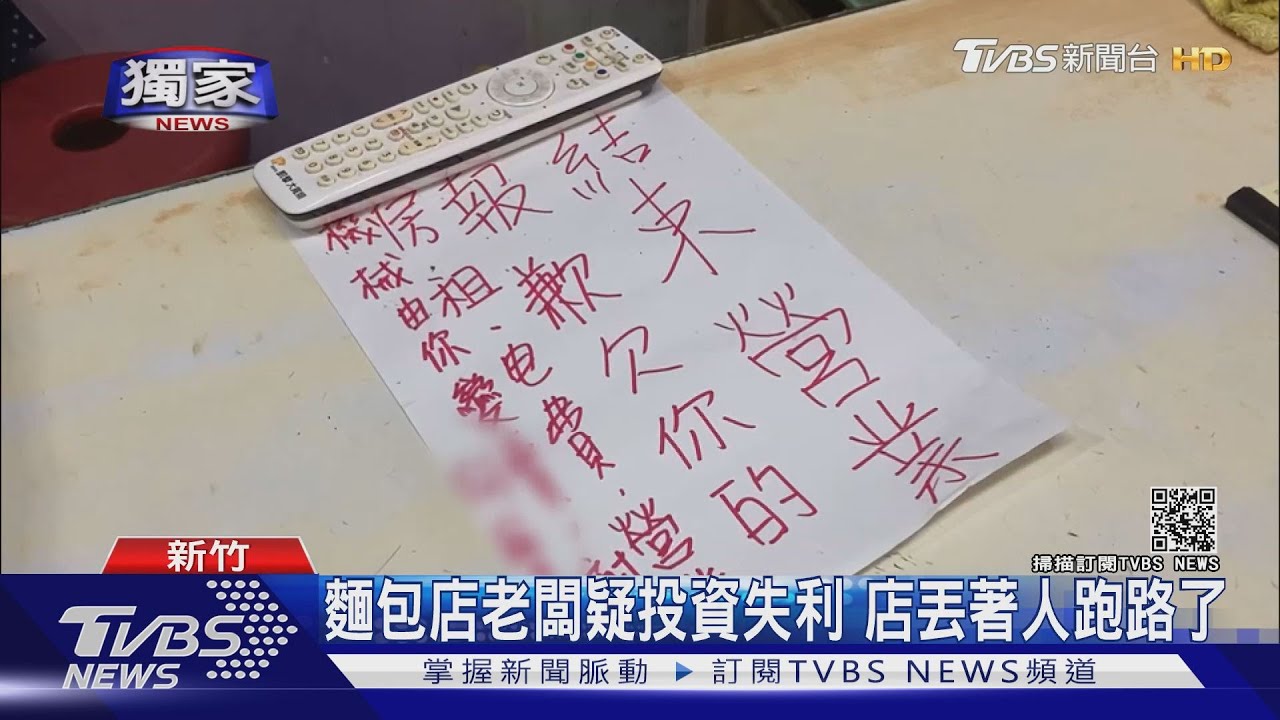 獨家
NEWS
TVBS新聞台 HD
結束營業
報歉欠你的
房租.电費.營
機械由你變
掃描訂閱TVBS NEWS
新竹
麵包店老闆疑投資失利 店丟著人跑路了
TVBS NEWS
掌握新聞脈動 ▶ 訂閱TVBS NEWS頻道